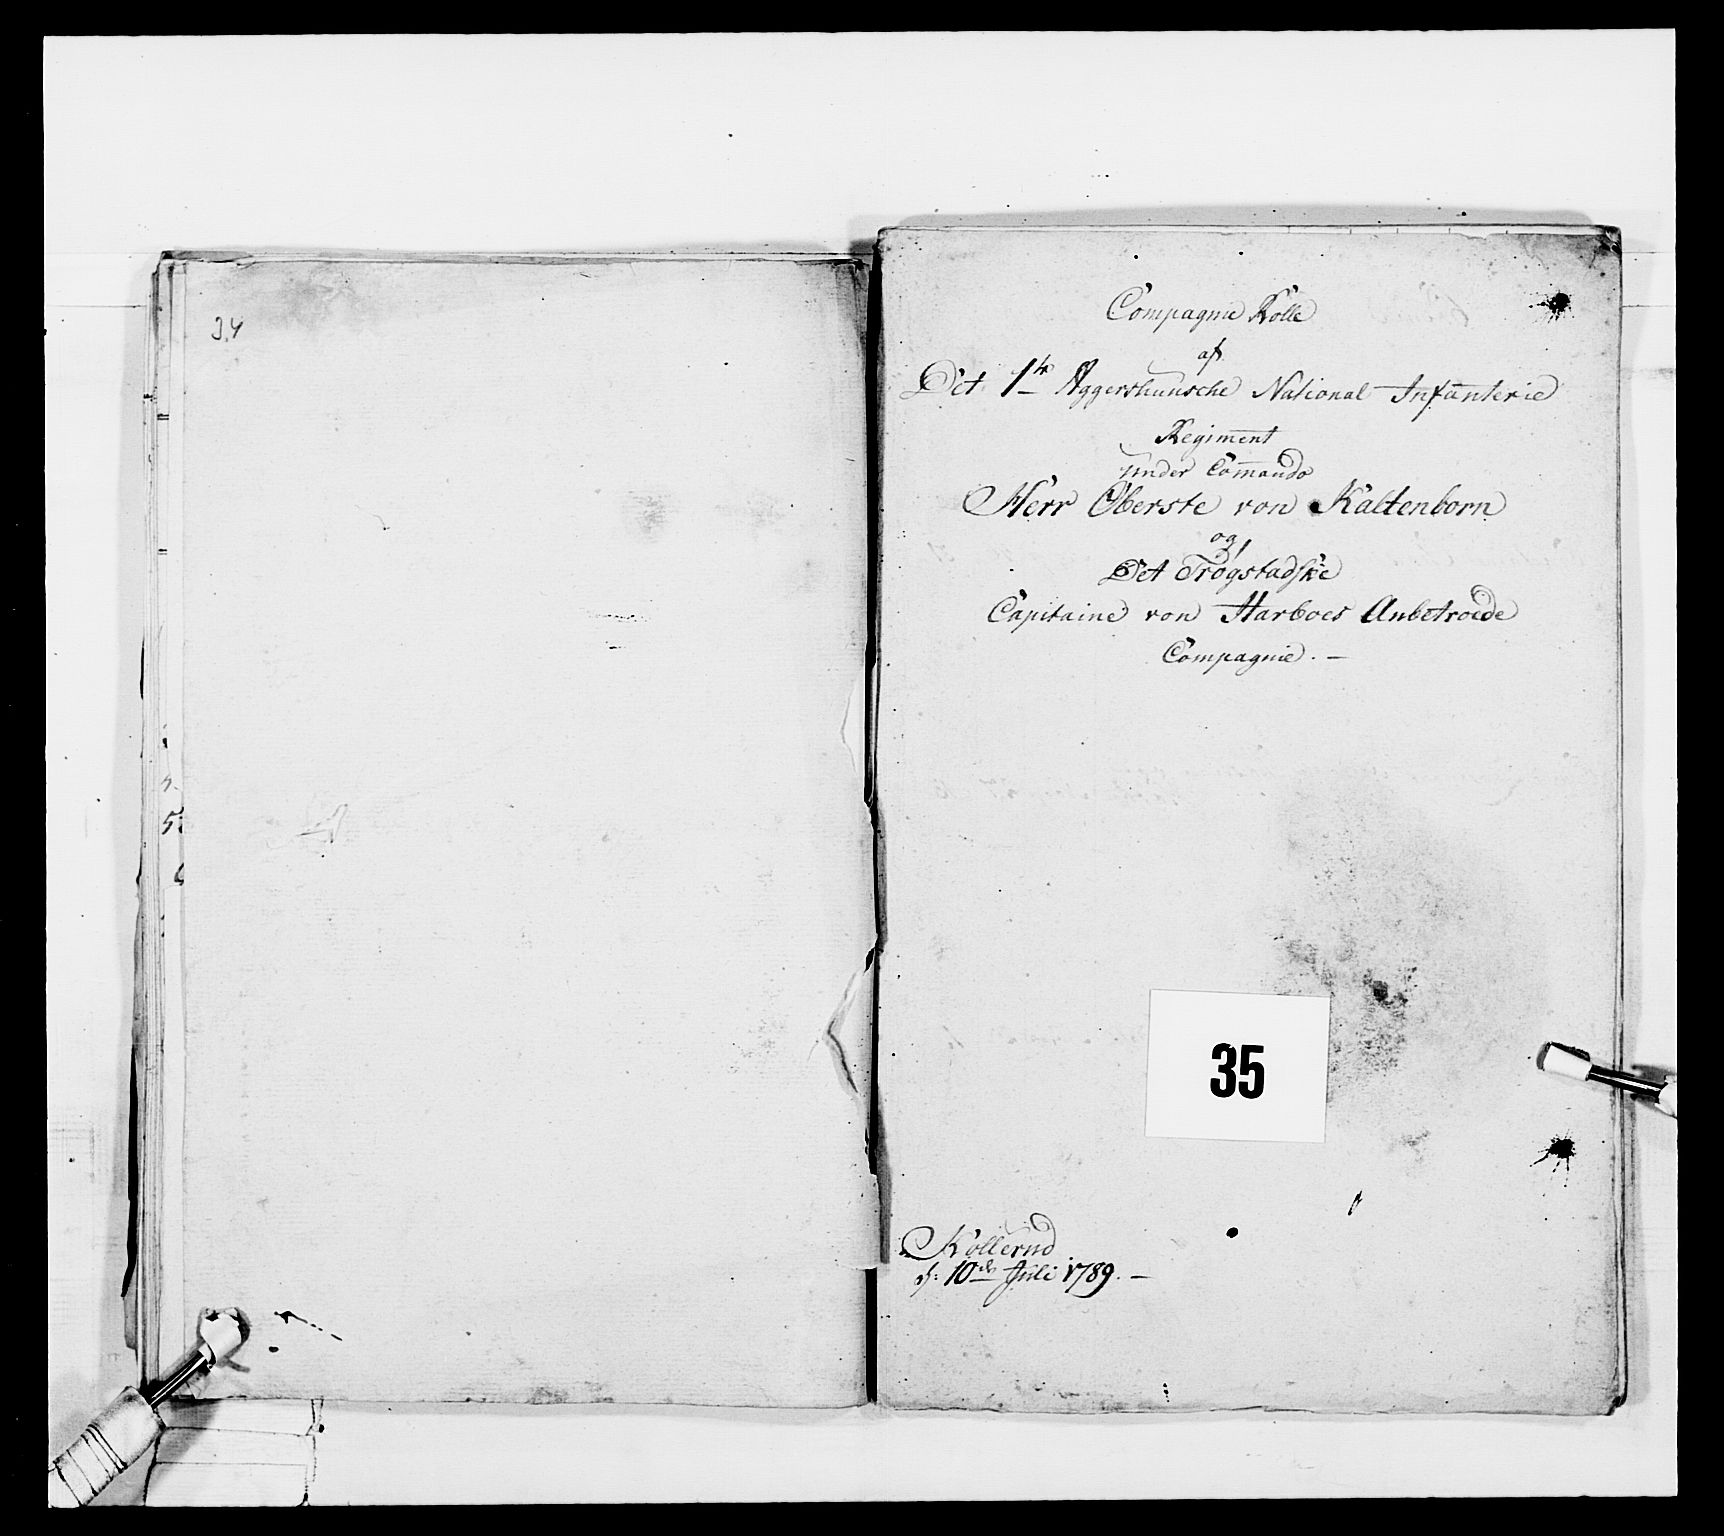 34
Compagnie Rolle
af
Det 1te Aggershuusche National Infanterie
Regiment
under Com̄ando
Herr Oberste von Kaltenborn
og
Det Trøgstadske
Capitaine von Harboes Anbetroede
Compagnie. —
35
Kollerud
d: 10de Juli 1789. —